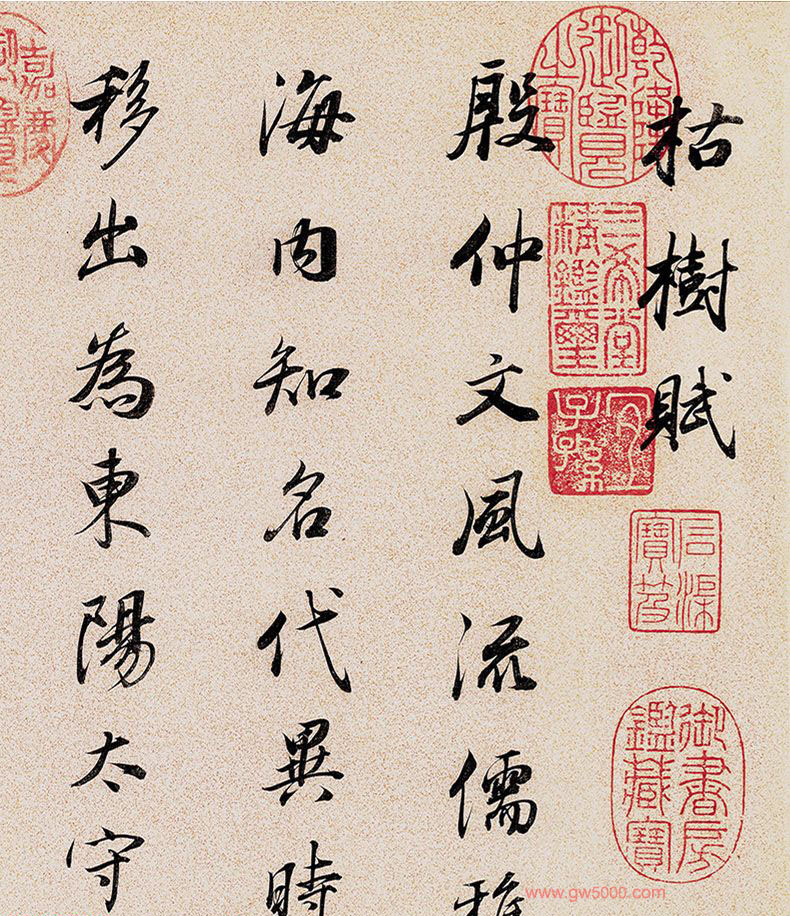 枯樹賦
乾隆御覽之寶
三希堂精鑑璽
宜子孫
石渠寶笈
御書房鑑藏寶
殷仲文風流儒雅
海内知名代異時
移出為東陽太守
嘉慶御覽
www.gw5000.com